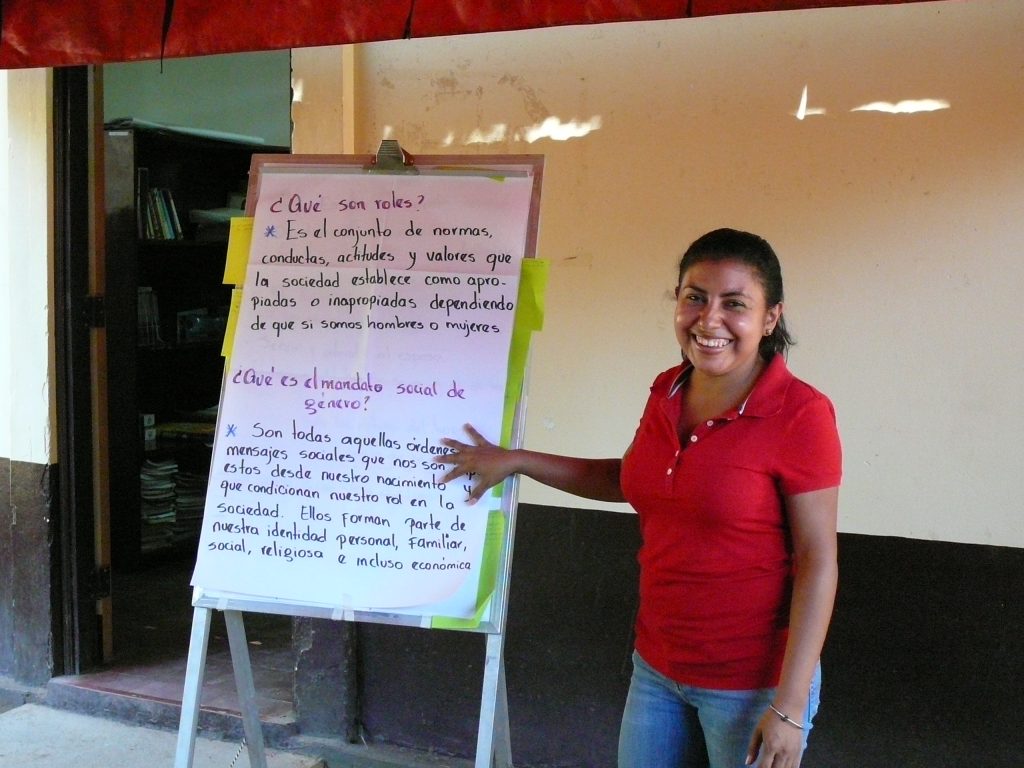 ¿Qué son roles?
* Es el conjunto de normas,
conductas, actitudes y valores que
la sociedad establece como apro-
piadas o inapropiadas dependiendo
de que si somos hombres o mujeres
¿Qué es el mandato social de
género?
* Son todas aquellas órdenes
mensajes sociales que nos son
estos desde nuestro nacimiento y
que condicionan nuestro rol en la
sociedad. Ellos forman parte de
nuestra identidad personal, familiar,
social, religiosa e incluso económica